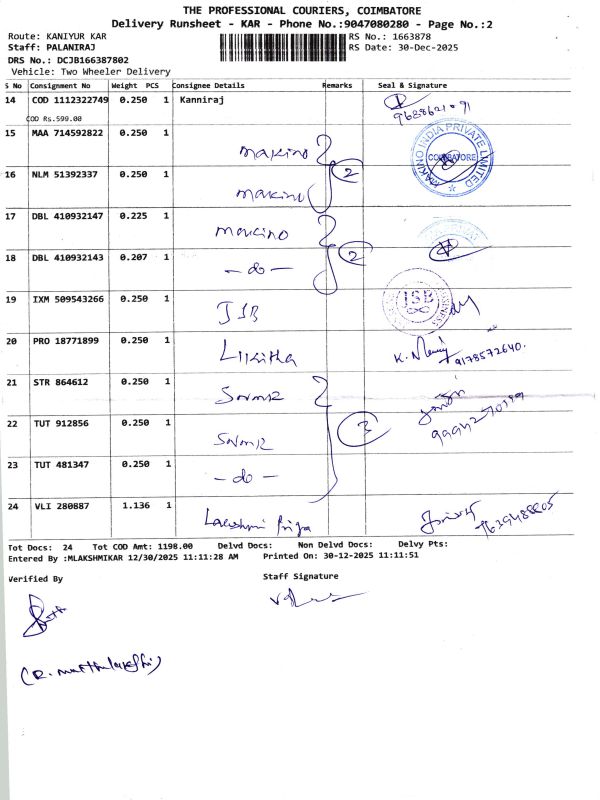 THE PROFESSIONAL COURIERS, COIMBATORE
Delivery Runsheet - KAR - Phone No.:9047080280 - Page No.:2
Route: KANIYUR KAR RS No.: 1663878
Staff: PALANIRAJ RS Date: 30-Dec-2025
DRS No.: DCJB166387802
Vehicle: Two Wheeler Delivery
S No Consignment No Weight PCS Consignee Details Remarks Seal & Signature
14 COD 1112322749 0.250 1 Kanniraj
COD Rs.599.00
15 MAA 714592822 0.250 1 makino
MAKINO INDIA PRIVATE LIMITED
COIMBATORE
16 NLM 51392337 0.250 1 makino 2
17 DBL 410932147 0.225 1 makino
18 DBL 410932143 0.207 1 - do - 2
19 IXM 509543266 0.250 1 JSB JSB
20 PRO 18771899 0.250 1 Likitha K. 9178572640.
21 STR 864612 0.250 1
22 TUT 912856 0.250 1 3
23 TUT 481347 0.250 1 - do -
24 VLI 280887 1.136 1 Lakshmi Priya
Tot Docs: 24 Tot COD Amt: 1198.00 Delvd Docs: Non Delvd Docs: Delvy Pts:
Entered By :MLAKSHMIKAR 12/30/2025 11:11:28 AM Printed On: 30-12-2025 11:11:51
Verified By Staff Signature